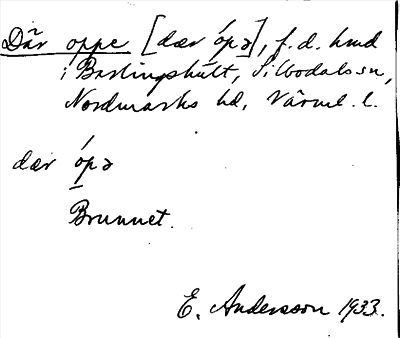 Där oppe [dær ópə], f. d. hmd
i Bastingshult, Silbodals sn,
Nordmarks hd, Värml. l.
dær ópə
Brunnet.
E. Andersson 1933.